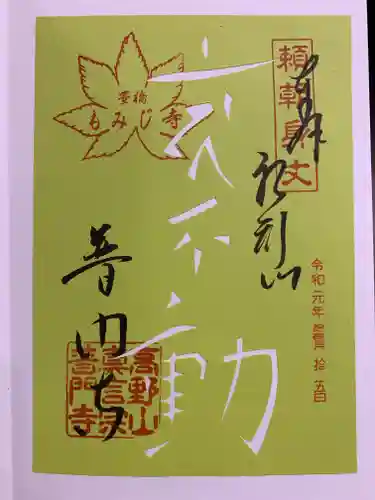 頼朝身丈
奉拝
船形山
令和元年 拾五日
不動
豊橋
もみじ寺
普門寺
高野山
真言宗
普門寺